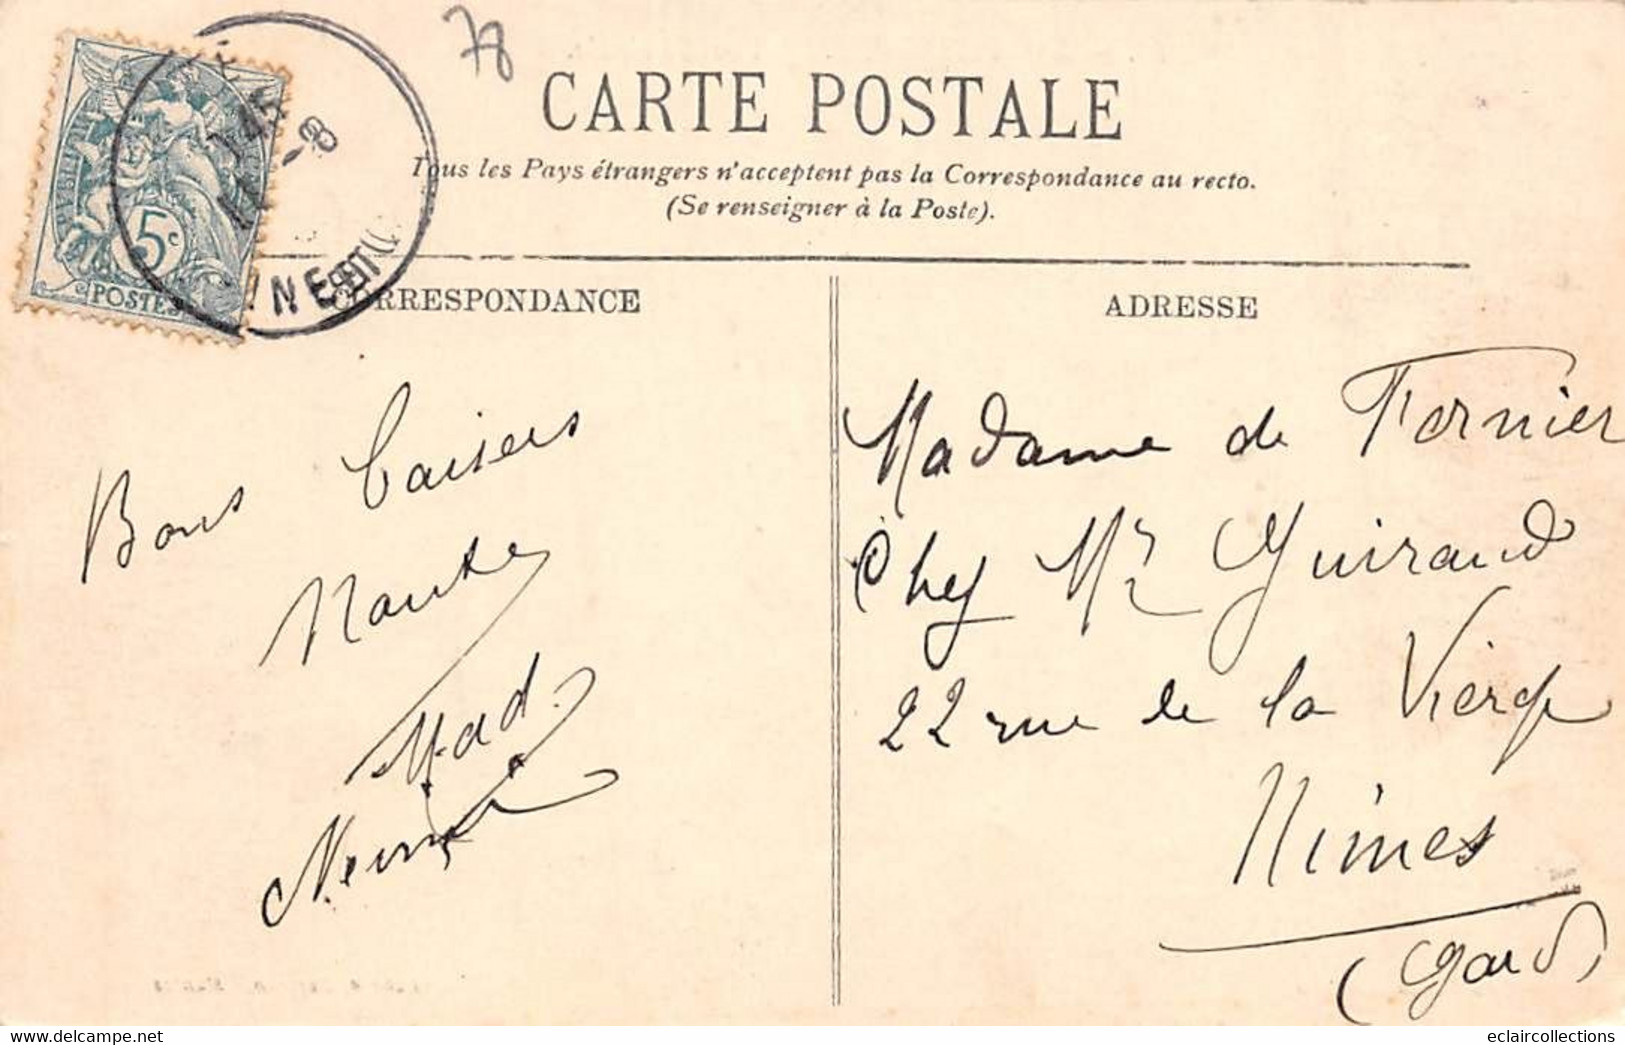 78
CARTE POSTALE
Tous les Pays étrangers n'acceptent pas la Correspondance au recto.
(Se renseigner à la Poste).
5c
POSTES
CORRESPONDANCE
ADRESSE
Bons baisers
Mad.
Madame de Fornier
Chez Mr Guiraud
22 rue de la Vierge
Nimes
(Gard)
Delcampe.net
eclaircollections